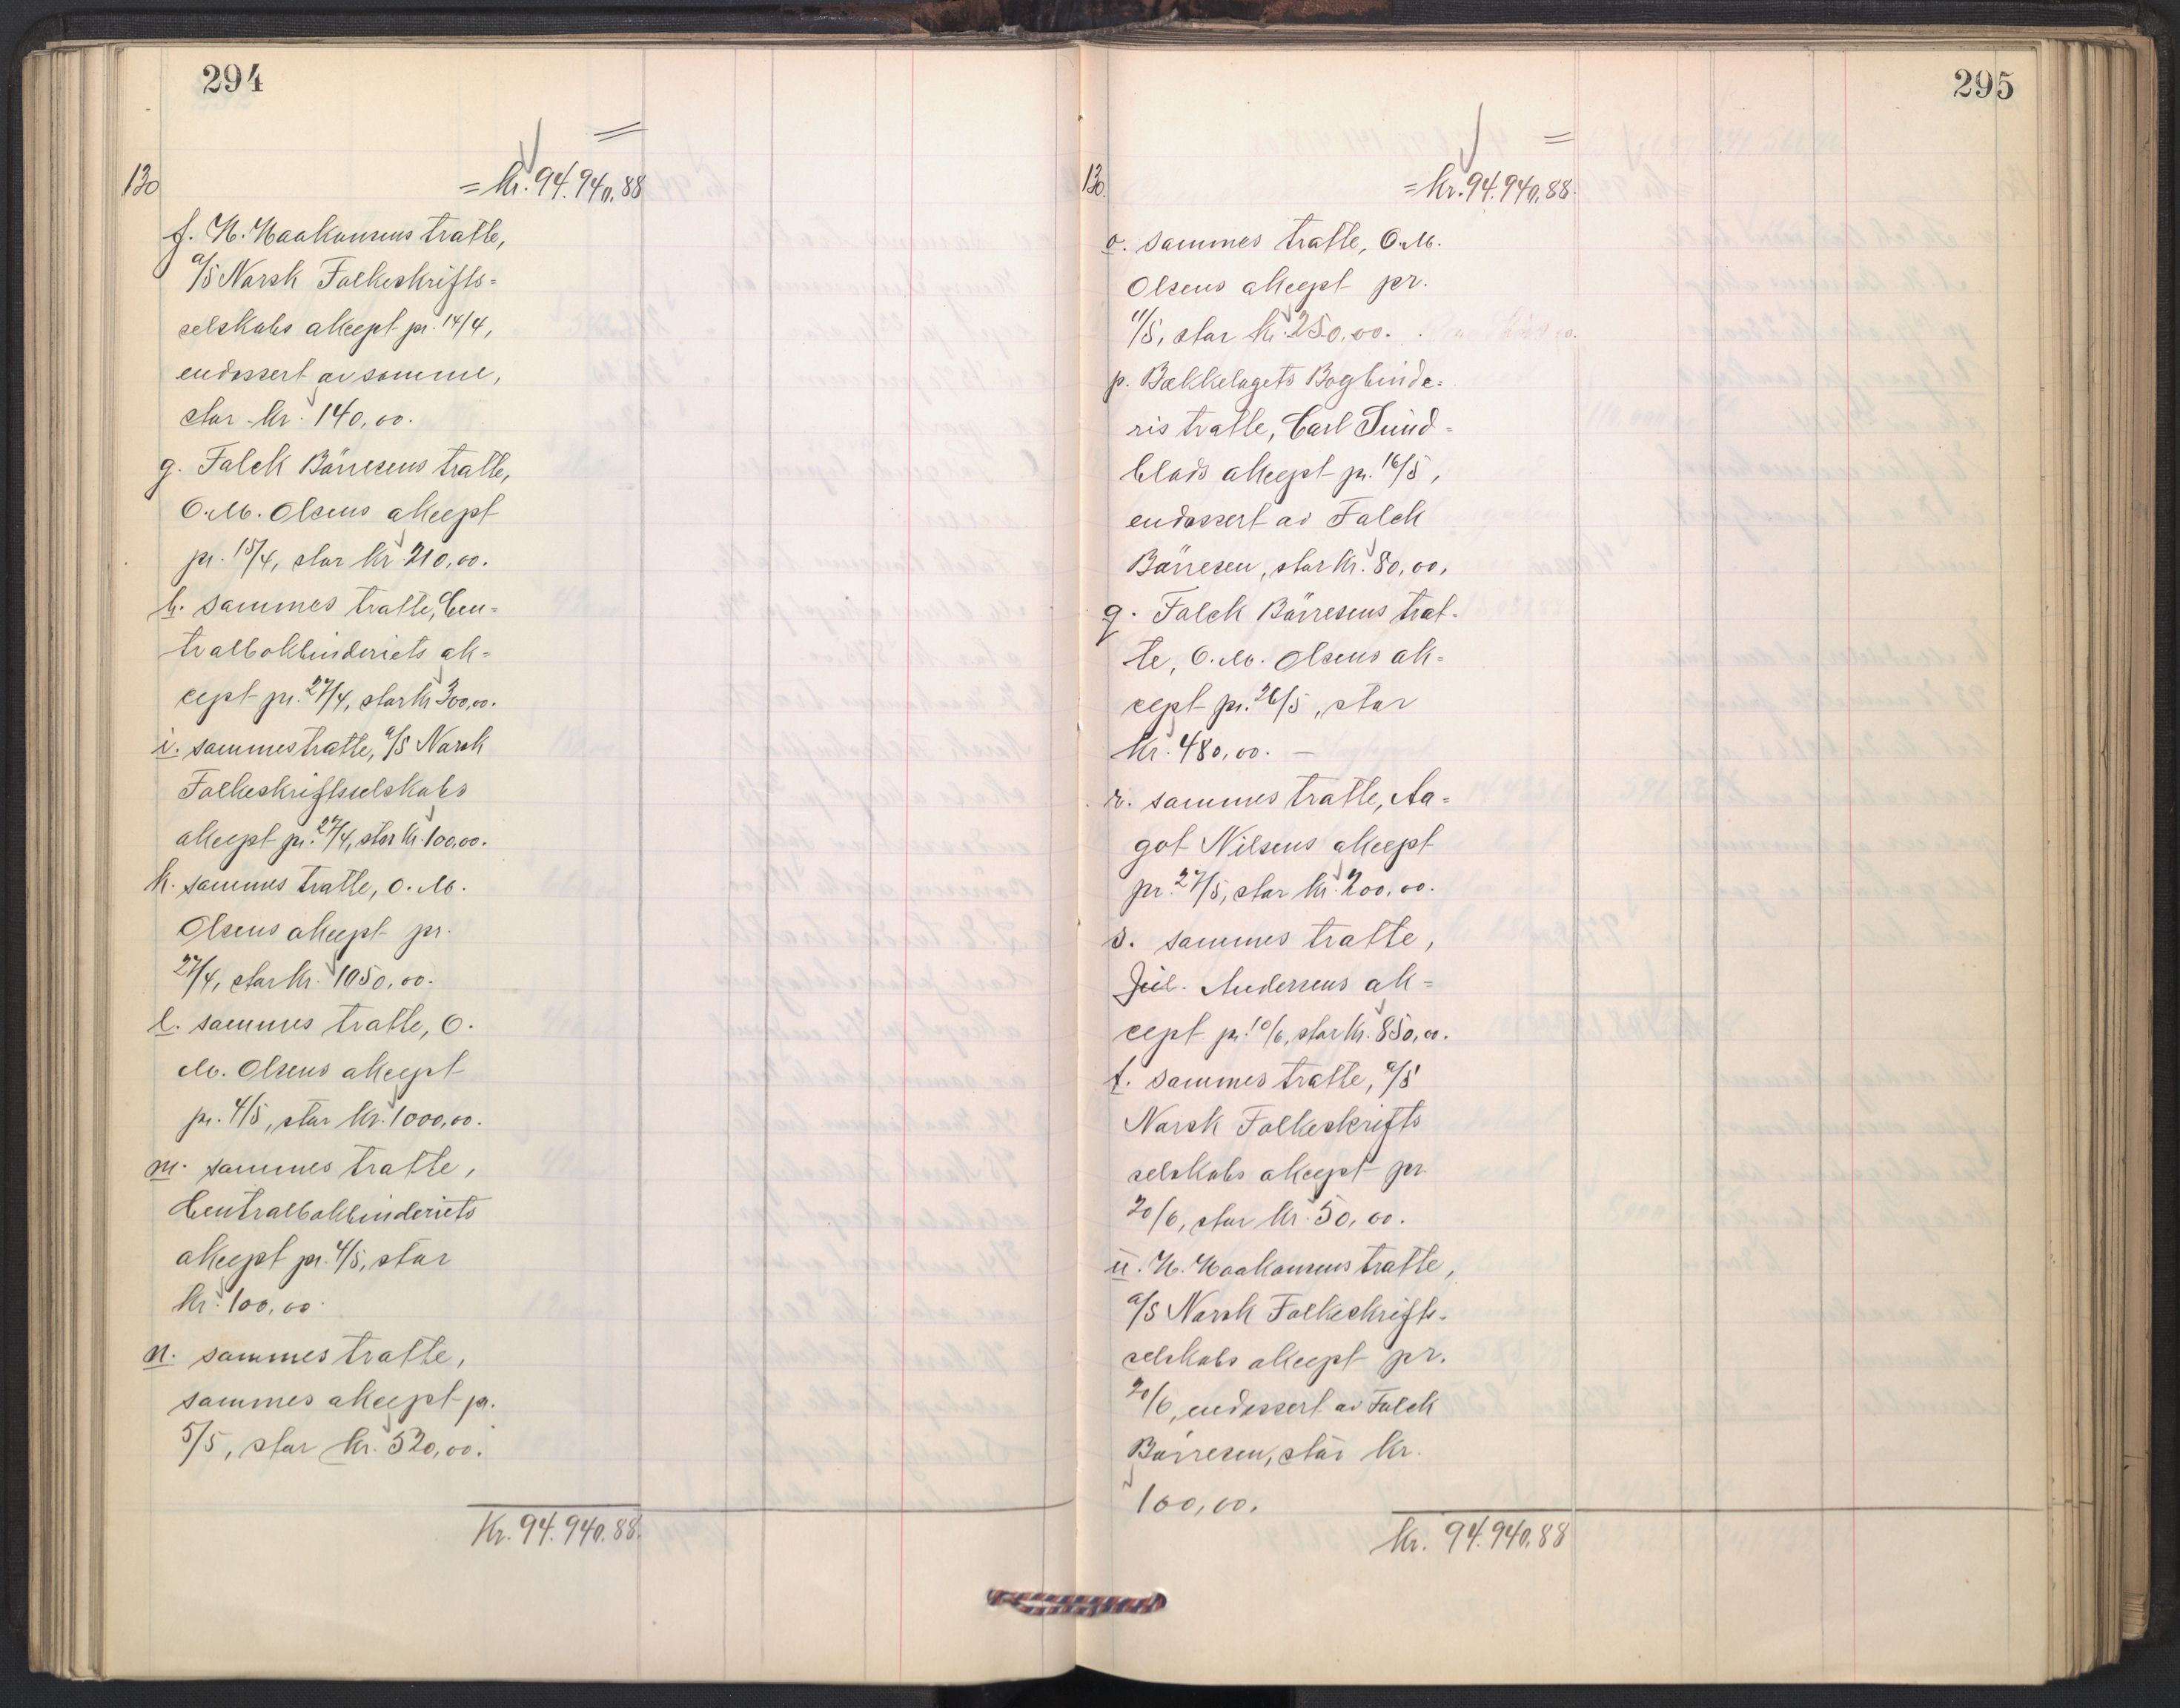 294
130
= kr. 94.940,88
f. H. Haakonsens tratte,
a/s Norsk Folkeskrifts=
selskabs akcept pr. 14/4,
endossert av samme,
stor kr. 140,00.
g. Falck Börresens tratte,
O. M. Olsens akcept
pr. 15/4, stor kr 210,00.
h. sammes tratte, Cen=
tralbokbinderiets ak=
cept pr. 27/4, stor kr 300,00.
i. sammes tratte, a/s Norsk
Folkeskriftsselskabs
akcept pr. 27/4, stor kr. 100,00.
k. sammes tratte, O. M.
Olsens akcept pr.
27/4, stor kr. 1050,00.
l. sammes tratte, O.
M. Olsens akcept
pr. 4/5, stor kr. 1000,00.
m. sammes tratte,
Centralbokbinderiets
akcept pr. 4/5, stor
kr. 100,00.
n. sammes tratte,
sammes akcept pr.
5/5, stor kr. 520,00.
Kr. 94.940,88.
295
130.
= kr. 94.940,88.
o. sammes tratte, O. M.
Olsens akcept pr.
11/5, stor kr. 250,00.
p. Bækkelagets Bogbinde=
ris tratte, Carl Sund=
blads akcept pr. 16/5,
endossert av Falck
Börresen, stor kr. 80,00,
q. Falck Börresens trat=
te, O. M. Olsens ak=
cept pr. 26/5, stor
kr. 480,00. —
r. sammes tratte, Aa=
got Nilsens akcept
pr. 27/5, stor kr. 200,00.
s. sammes tratte,
Jul. Andersens ak=
cept pr. 10/6, stor kr. 850,00.
t. sammes tratte, a/s
Norsk Folkeskrifts
selskabs akcept pr
20/6, stor kr. 50,00.
u. H. Haakonsens tratte,
a/s Norsk Folkeskrifts=
selskabs akcept pr.
20/6, endossert av Falck
Börresen, stor kr.
100,00.
kr. 94.940,88